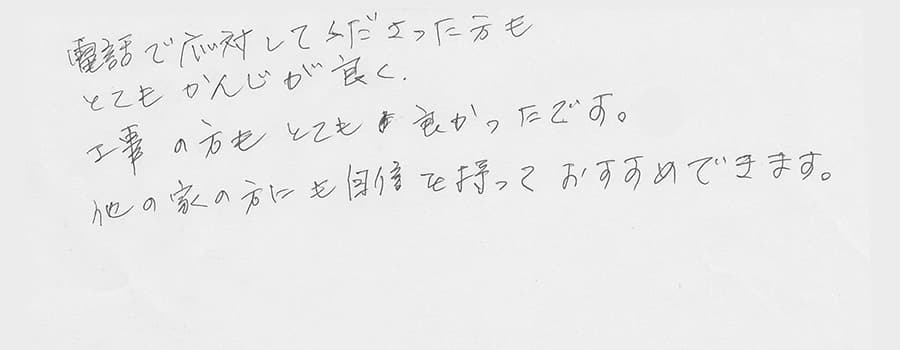 電話で応対してくださった方も
とてもかんじが良く、
工事の方もとても良かったです。
他の家の方にも自信を持っておすすめできます。